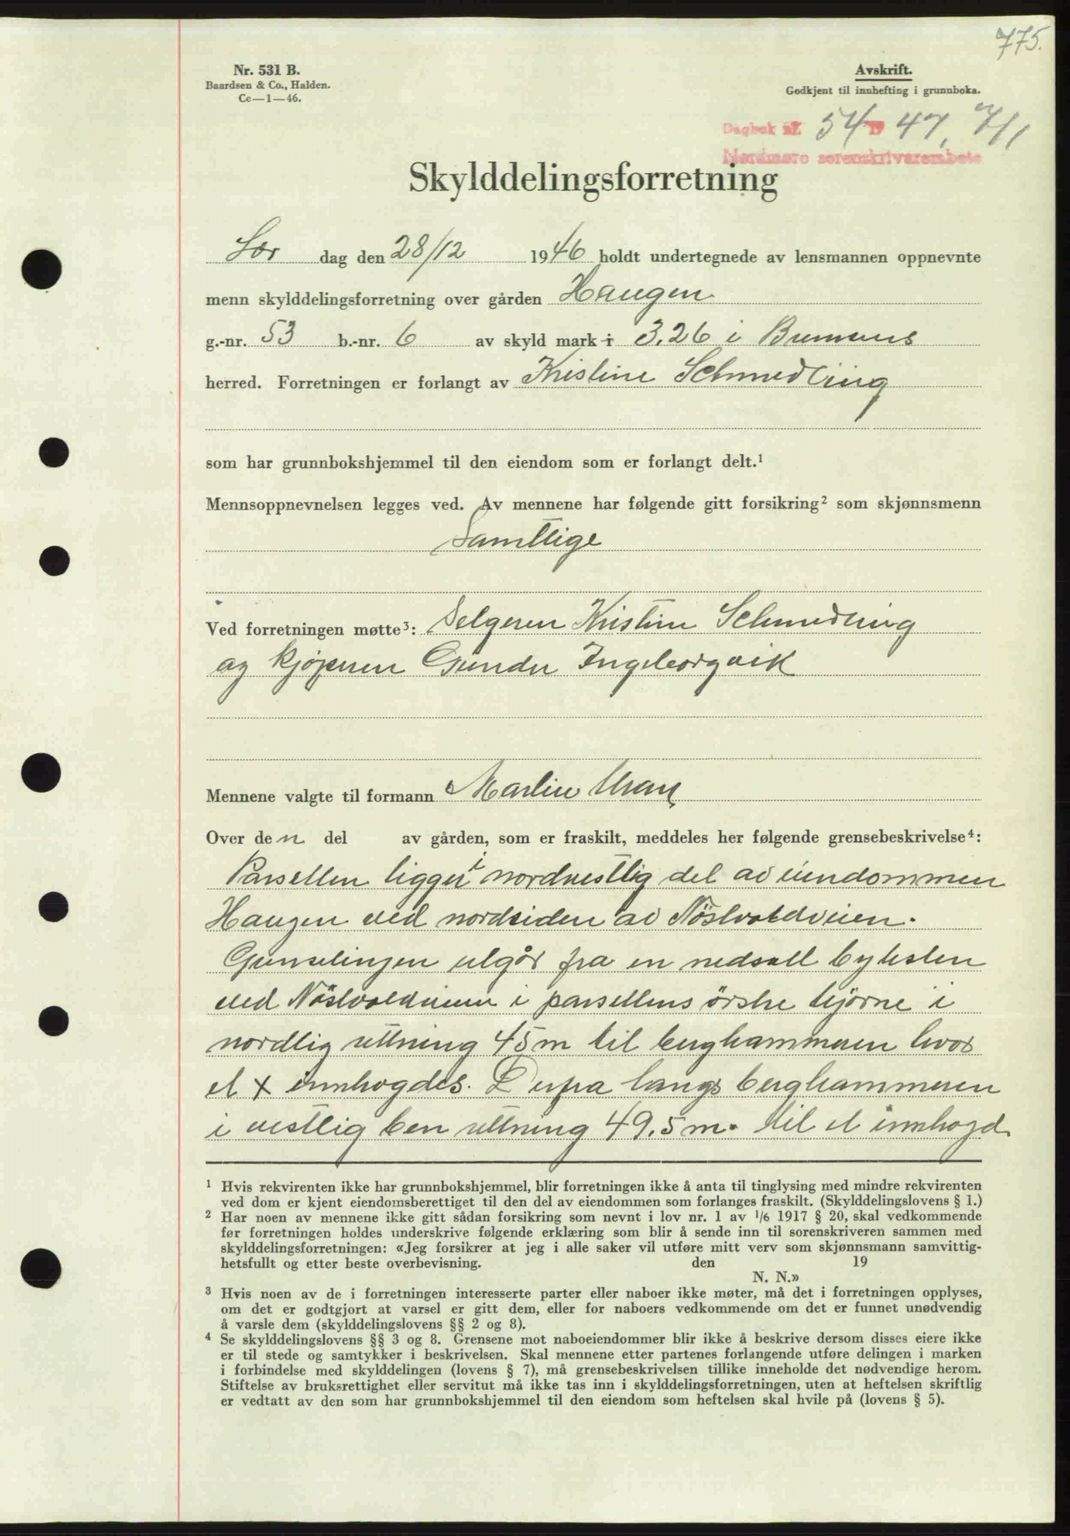 775.
Nr. 531 B.
Baardsen & Co., Halden.
Ce—1—46.
Avskrift.
Godkjent til innhefting i grunnboka.
Dagbok nr. 54 19 47, 7/1
Nordmøre sorenskriverembete
Skylddelingsforretning
Lør dag den 28/12 1946 holdt undertegnede av lensmannen oppnevnte
menn skylddelingsforretning over gården Haugen
g.-nr. 53 b.-nr. 6 av skyld mark i 3,26 i Bremsnes
herred. Forretningen er forlangt av Kristine Schmedling
som har grunnbokshjemmel til den eiendom som er forlangt delt.¹
Mennsoppnevnelsen legges ved. Av mennene har følgende gitt forsikring² som skjønnsmenn
Samtlige
Ved forretningen møtte³: Selgeren Kristine Schmedling
og kjøperen Gunder Ingeborgvik
Mennene valgte til formann Martin
Over den del av gården, som er fraskilt, meddeles her følgende grensebeskrivelse⁴:
Parsellen ligger i nordvestlig del av eiendommen
Haugen ved nordsiden av Nöslvoldveien.
Grenselinjen utgår fra en nedsatt bytesten
ved Nöslvoldveien i parsellens østre hjörne i
nordlig retning 45 m til berghammeren hvor
et x innhogdes. Derfra langs berghammeren
i vestlig ben retning 49,5 m. til et innhogd
¹ Hvis rekvirenten ikke har grunnbokshjemmel, blir forretningen ikke å anta til tinglysing med mindre rekvirenten
ved dom er kjent eiendomsberettiget til den del av eiendommen som forlanges fraskilt. (Skylddelingslovens § 1.)
² Har noen av mennene ikke gitt sådan forsikring som nevnt i lov nr. 1 av 1/6 1917 § 20, skal vedkommende
før forretningen holdes underskrive følgende erklæring som blir å sende inn til sorenskriveren sammen med
skylddelingsforretningen: «Jeg forsikrer at jeg i alle saker vil utføre mitt verv som skjønnsmann samvittig-
hetsfullt og etter beste overbevisning. den 19
N. N.»
³ Hvis noen av de i forretningen interesserte parter eller naboer ikke møter, må det i forretningen opplyses,
om det er godtgjort at varsel er gitt dem, eller for naboers vedkommende om det er funnet unødvendig
å varsle dem (skylddelingslovens §§ 2 og 8).
⁴ Se skylddelingslovens §§ 3 og 8. Grensene mot naboeiendommer blir ikke å beskrive dersom disses eiere ikke
er til stede og samtykker i beskrivelsen. Skal mennene etter partenes forlangende utføre delingen i marken
i forbindelse med skylddelingen (lovens § 7), må grensebeskrivelsen tillike inneholde det nødvendige herom.
Stiftelse av bruksrettighet eller servitut må ikke tas inn i skylddelingsforretningen, uten at heftelsen skriftlig
er vedtatt av den som har grunnbokshjemmel til den eiendom som heftelsen skal hvile på (lovens § 5).